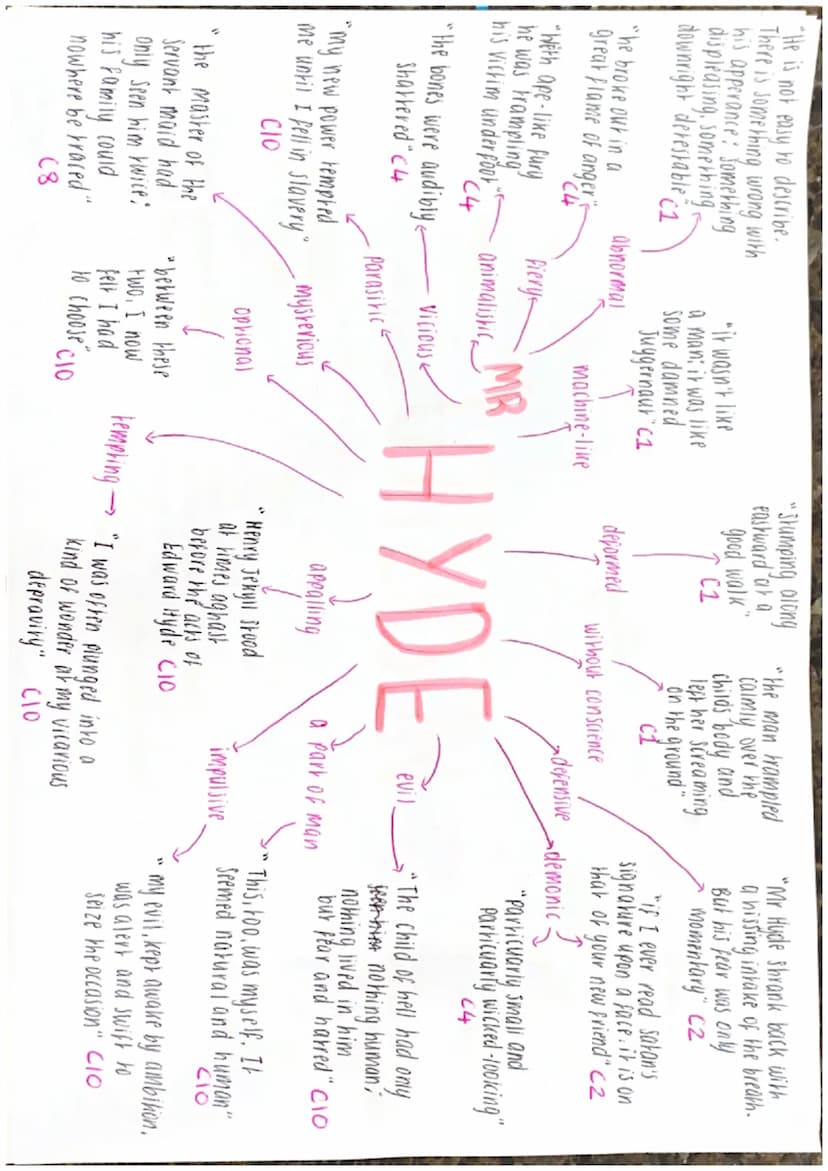 "He is not easy to describe.
There is something wrong with
his apperance; something
displeasing, something
downright detestable"
C1
abnormal
"he broke out in a
great flame of anger"
C4
fiery
"With ape-like fury
he was trampling
his victim underfoot"
C4
animalistic
"the bones were audibly
shattered" C4
vicious
"my new power tempted
me until I fell in slavery"
C10
parasitic
"the master of the
servant maid had
only seen him twice;
his family could
nowhere be traced"
C8
mysterious
"between these
two, I now
felt I had
to choose"
C10
optional
"it wasn't like
a man it was like
some damned
Juggernaut" C1
machine-like
MR
HYDE
tempting
"I was often plunged into a
kind of wonder at my vicarious
depravity"
C10
"stumping along
eastward at a
good walk"
C1
deformed
"the man trampled
calmly over the
child's body and
left her screaming
on the ground"
C1
without conscience
appalling
"Henry Jekyll stood
at times aghast
before the acts of
Edward Hyde C10
"Mr Hyde shrank back with
a hissing intake of the breath.
But his fear was only
momentary" C2
defensive
"if I ever read satan's
signature upon a face, it is on
that of your new friend" C2
demonic
"particularly small and
particularly wicked-looking"
C4
evil
"The child of hell had only
nothing human;
nothing lived in him
but fear and hatred" C10
a part of man
"This too, was myself. It
seemed natural and human"
C10
impulsive
"my evil, kept awake by ambition,
was alert and swift to
seize the occasion" C10